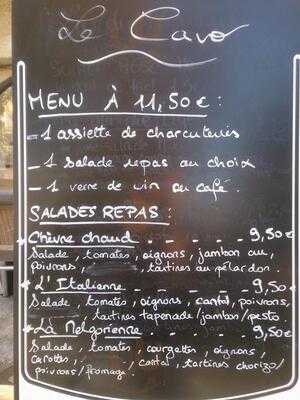 Le Cavo
MENU À 11,50€ :
- 1 assiette de charcuteries
- 1 salade repas au choix
- 1 verre de vin ou café.
SALADES REPAS :
Chèvre chaud - - - - 9,50€
Salade, tomates, oignons, jambon cru,
poivrons, tartines au pélardon.
L'Italienne - - - - - 9,50€
Salade, tomates, oignons, cantal, poivrons,
tartines tapenade/jambon/pesto
La Melgorienne - - - 9,50€
Salade, tomates, courgettes, oignons,
carottes, cantal, tartines chorizo/
poivrons/fromage.